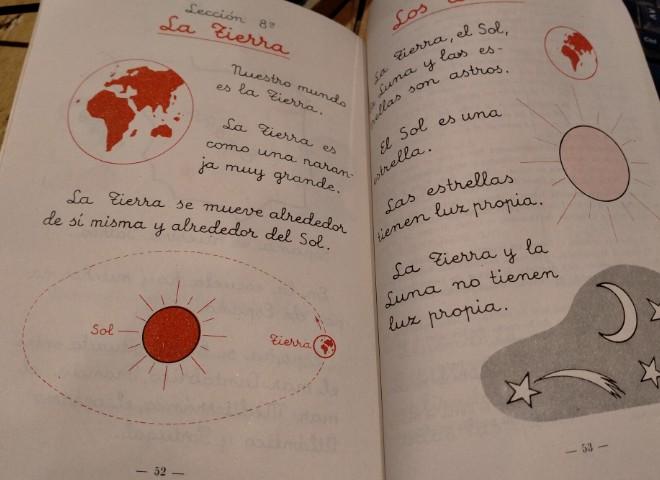 Lección 8ª
La Tierra
Nuestro mundo
es la Tierra.
La Tierra es
como una naran-
ja muy grande.
La Tierra se mueve alrededor
de sí misma y alrededor del Sol.
Sol
Tierra
— 52 —
Los
La Tierra, el Sol,
la Luna y las es-
trellas son astros.
El Sol es una
estrella.
Las estrellas
tienen luz propia.
La Tierra y la
Luna no tienen
luz propia.
— 53 —